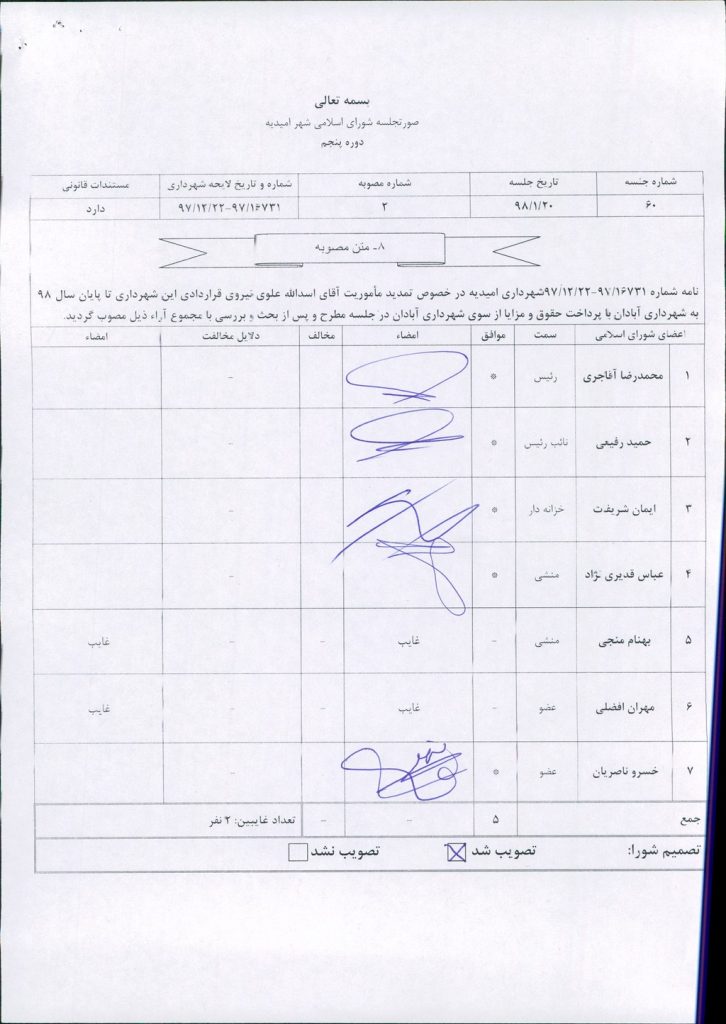 بسمه تعالی
صورتجلسه شورای اسلامی شهر امیدیه
دوره پنجم
شماره جلسه تاریخ جلسه شماره مصوبه شماره و تاریخ لایحه شهرداری مستندات قانونی
۶۰ ۹۸/۱/۲۰ ۲ ۹۷/۱۲/۲۲-۹۷/۱۶۷۳۱ دارد
۸- متن مصوبه
نامه شماره ۹۷/۱۶۷۳۱-۹۷/۱۲/۲۲شهرداری امیدیه در خصوص تمدید مأموریت آقای اسدالله علوی نیروی قراردادی این شهرداری تا پایان سال ۹۸
به شهرداری آبادان با پرداخت حقوق و مزایا از سوی شهرداری آبادان در جلسه مطرح و پس از بحث و بررسی با مجموع آراء ذیل مصوب گردید.
اعضای شورای اسلامی سمت موافق امضاء مخالف دلایل مخالفت امضاء
۱ محمدرضا آقاجری رئیس * -
۲ حمید رفیعی نائب رئیس * -
۳ ایمان شریفت خزانه دار * -
۴ عباس قدیری نژاد منشی * -
۵ بهنام منجی منشی - غایب - - غایب
۶ مهران افضلی عضو - غایب - - غایب
۷ خسرو ناصریان عضو * -
جمع ۵ - - تعداد غایبین: ۲ نفر
تصمیم شورا: تصویب شد تصویب نشد